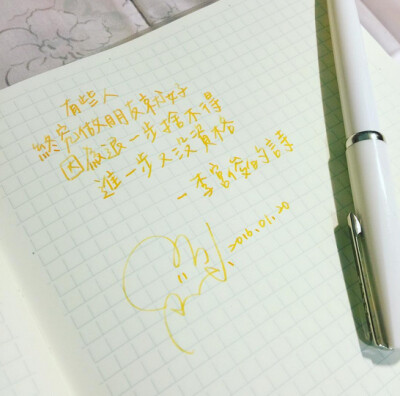 有些人
終究做朋友就好
因為退一步捨不得
進一步又沒資格
－李宮俊的詩
2016.01.20